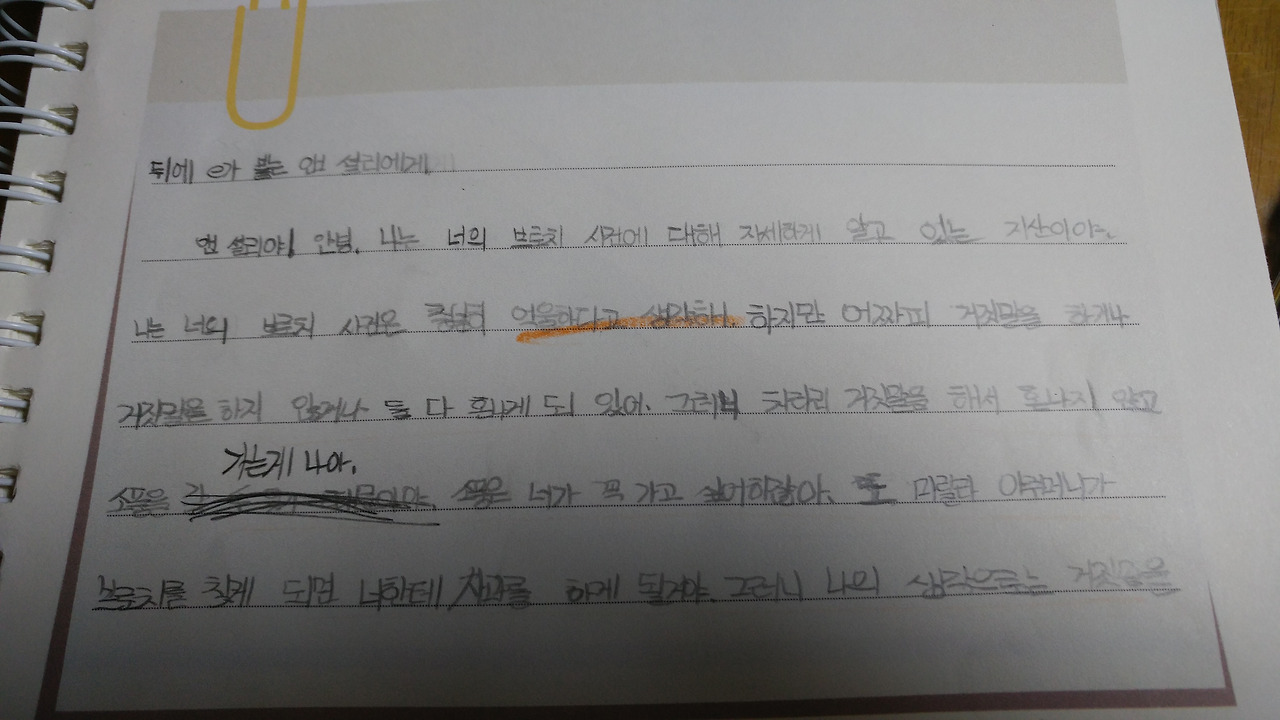 뒤에 e가 붙는 앤 셜리에게
앤 셜리야! 안녕. 나는 너의 브로치 사건에 대해 자세하게 알고 있는 지산이야.
나는 너의 브로치 사건은 억울하다고 생각해. 하지만 어짜피 거짓말을 하거나
거짓말을 하지 않거나 둘 다 혼나게 되 있어. 그러니 차라리 거짓말을 해서 혼나지 않고
가는게 나아.
소풍을 소풍은 너가 꼭 가고 싶어하잖아. 또 마릴라 아주머니가
브로치를 찾게 되면 너한테 사과를 하게 될거야. 그러니 나의 생각으로는